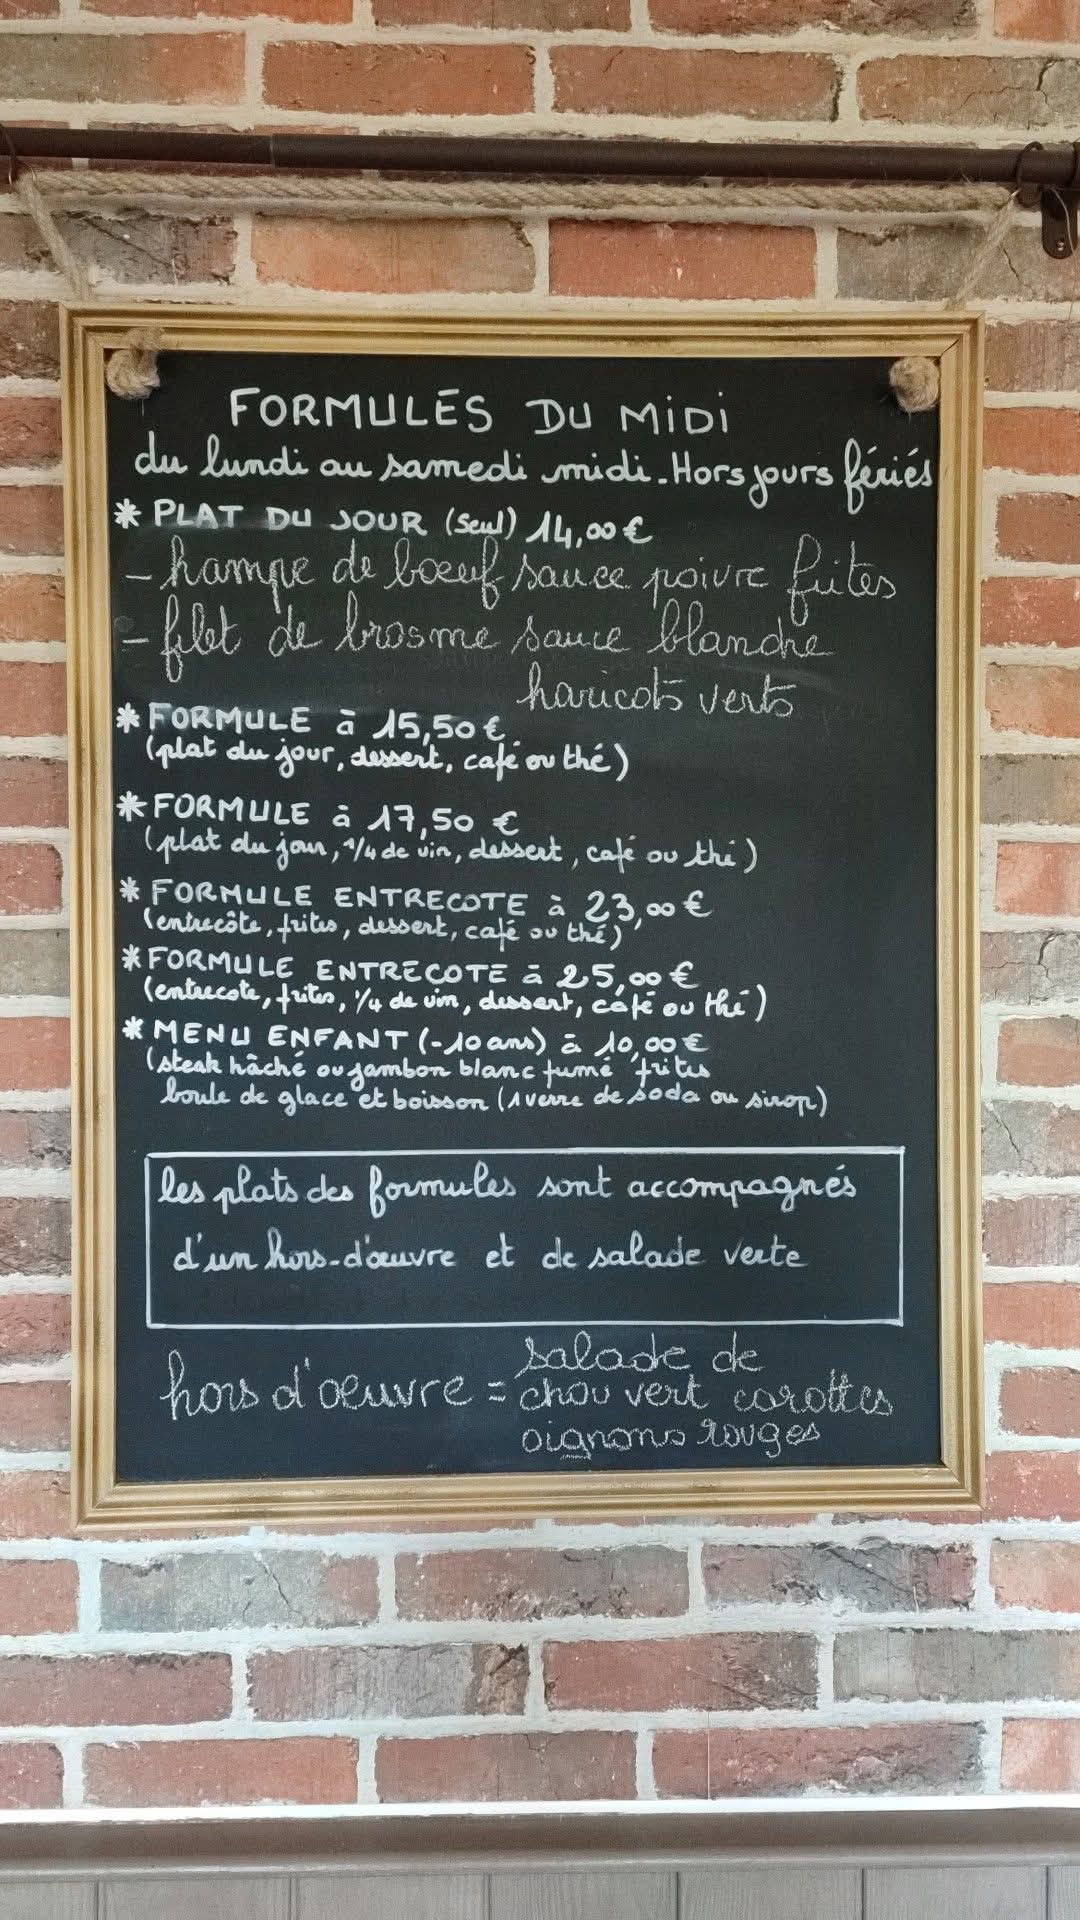 FORMULES DU MiDi
du lundi au samedi midi. Hors jours fériés
* PLAT DU JOUR (seul) 14,00 €
- hampe de bœuf sauce poivre frites
- filet de brosme sauce blanche
haricots verts
* FORMULE à 15,50 €
(plat du jour, dessert, café ou thé)
* FORMULE à 17,50 €
(plat du jour, 1/4 de vin, dessert, café ou thé)
* FORMULE ENTRECOTE à 23,00 €
(entrecôte, frites, dessert, café ou thé)
* FORMULE ENTRECOTE à 25,00 €
(entrecote, frites, 1/4 de vin, dessert, café ou thé)
* MENU ENFANT (-10 ans) à 10,00 €
(steak hâché ou jambon blanc fumé frites
boule de glace et boisson (1 verre de soda ou sirop)
les plats des formules sont accompagnés
d'un hors-d'œuvre et de salade verte
hors d'oeuvre = salade de
chou vert carottes
oignons rouges